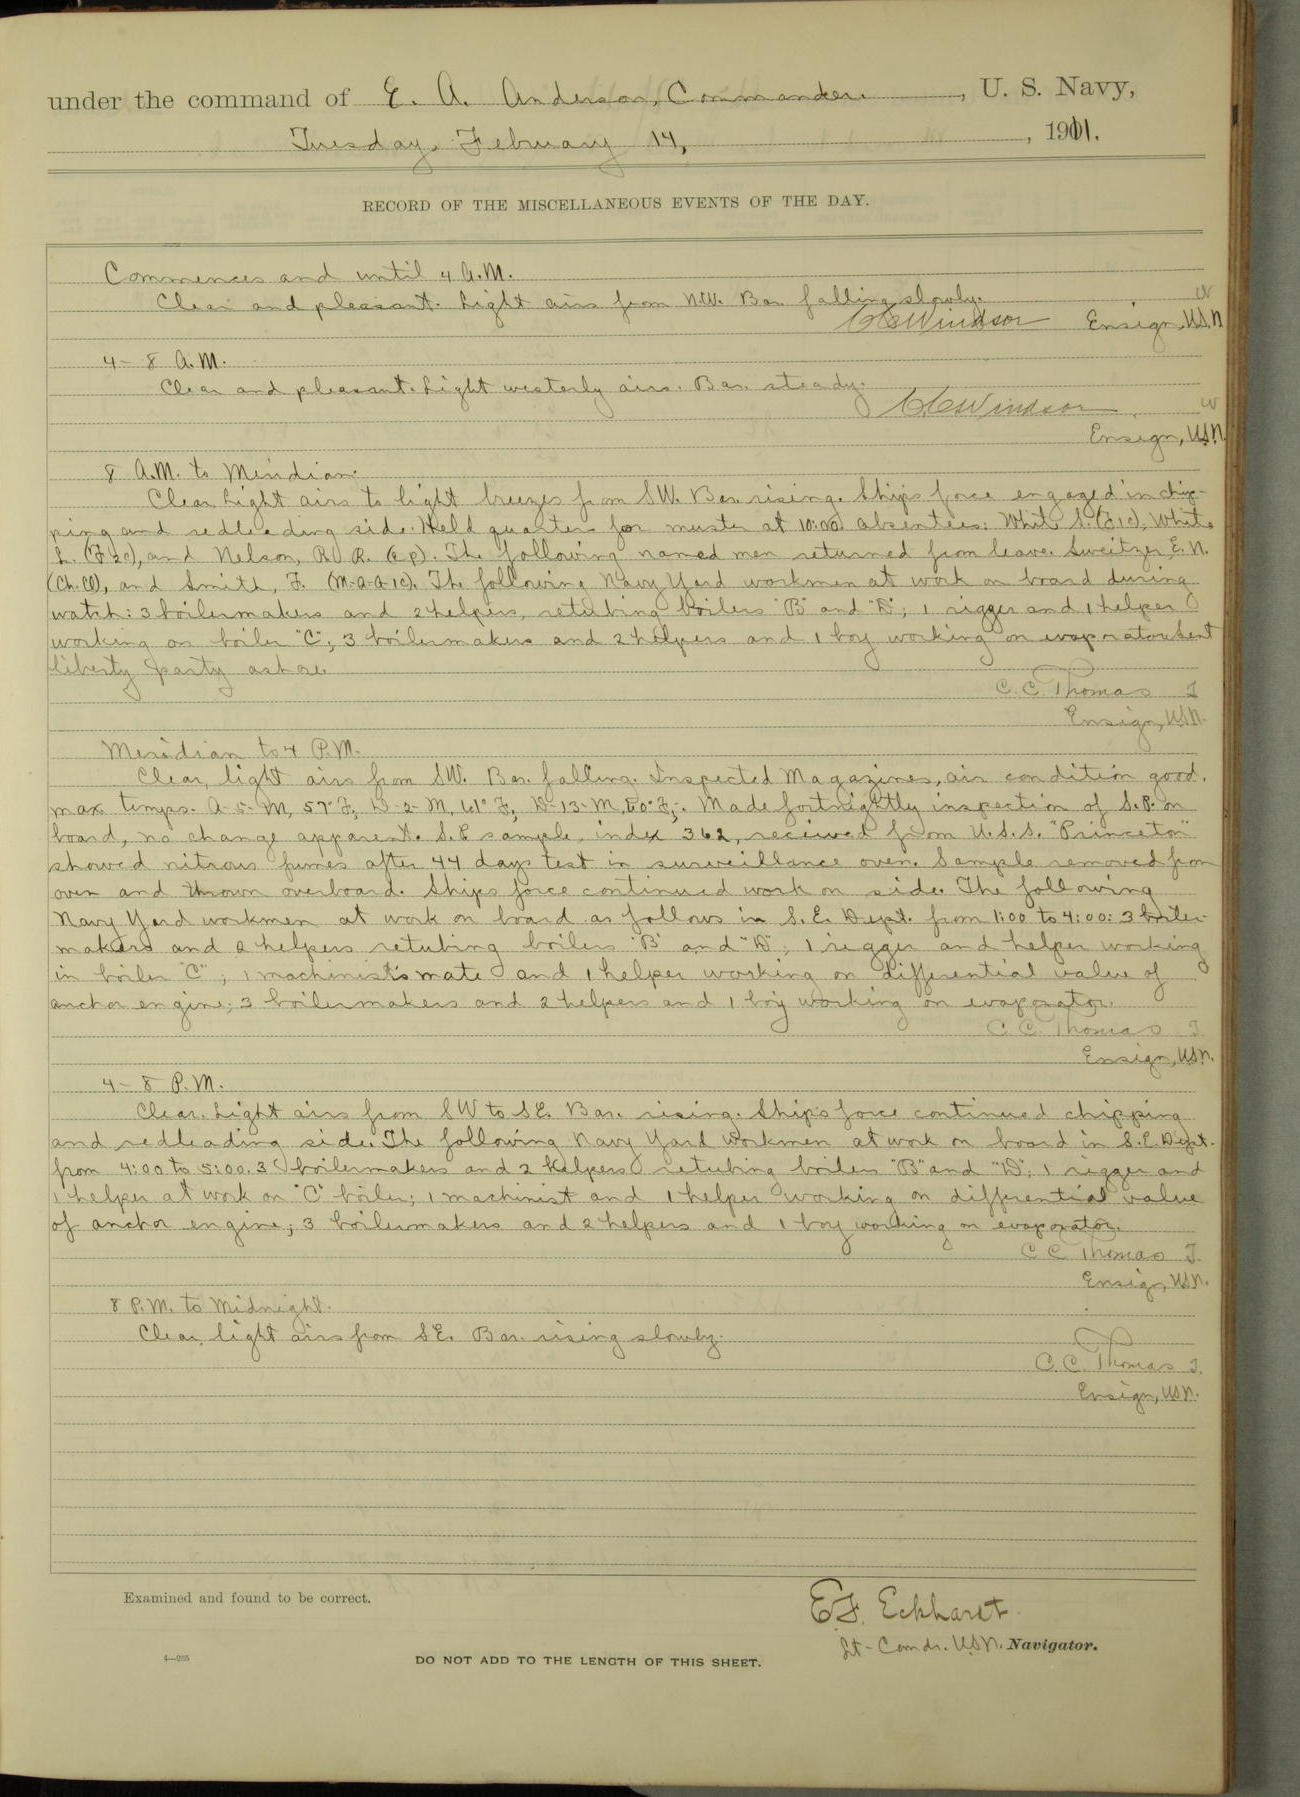 under the command of E. A. Anderson, Commander, U. S. Navy,
Tuesday, February 14, 1911.
RECORD OF THE MISCELLANEOUS EVENTS OF THE DAY.
Commences and until 4 A.M.
Clear and pleasant. Light airs from N.W. Bar. falling slowly.
W
Windsor Ensign, U.S.N
4 - 8 A.M.
Clear and pleasant. Light westerly airs. Bar. steady.
Windsor W
Ensign, U.S.N.
8 A.M. to Meridian.
Clear. Light airs to light breezes from SW. Bar. rising. Ship's force engaged in chip-
ping and redleading side. Held quarters for muster at 10:00. absentees: White S. (F1c), White
L. (F2c), and Nelson, R. R. The following named men returned from leave. Sweitzer, E. N.
and Smith, F. (M-a-a-1c). The following Navy Yard workmen at work on board during
watch: 3 boilermakers and 2 helpers, retubing boilers "B" and "D"; 1 rigger and 1 helper
working on boiler "C"; 3 boilermakers and 2 helpers and 1 boy working on evaporator. Sent
liberty party ashore.
C. C. Thomas T
Ensign, U.S.N.
Meridian to 4 P.M.
Clear, light airs from SW. Bar. falling. Inspected Magazines, air condition good.
max temps. A-5-M, 57° F., D-2-M, 61° F., D-13-M, F. Made fortnightly inspection of S.P. on
board, no change apparent. S.P. sample, index 362, received from U.S.S. "Princeton"
showed nitrous fumes after 44 days test in surveillance oven. Sample removed from
oven and thrown overboard. Ships force continued work on side. The following
Navy Yard workmen at work on board as follows in S.E. Dept. from 1:00 to 4:00: 3 boiler-
makers and 2 helpers retubing boilers "B" and "D"; 1 rigger and helper working
in boiler "C"; 1 machinist's mate and 1 helper working on differential valve of
anchor engine; 3 boilermakers and 2 helpers and 1 boy working on evaporator.
C. C. Thomas T.
Ensign, U.S.N.
4 - 8 P.M.
Clear. Light airs from SW to SE. Bar. rising. Ship's force continued chipping
and redleading side. The following Navy Yard workmen at work on board in S.E. Dept.
from 4:00 to 5:00. 3 boilermakers and 2 helpers retubing boilers "B" and "D"; 1 rigger and
1 helper at work on "C" boiler; 1 machinist and 1 helper working on differential valve
of anchor engine; 3 boilermakers and 2 helpers and 1 boy working on evaporator.
C C Thomas T.
Ensign, U.S.N.
8 P.M. to Midnight.
Clear, light airs from SE. Bar. rising slowly.
C. C. Thomas T.
Ensign, U.S.N.
Examined and found to be correct.
E.F. Eckhardt
Lt-Comdr. U.S.N. Navigator.
4—255
DO NOT ADD TO THE LENGTH OF THIS SHEET.